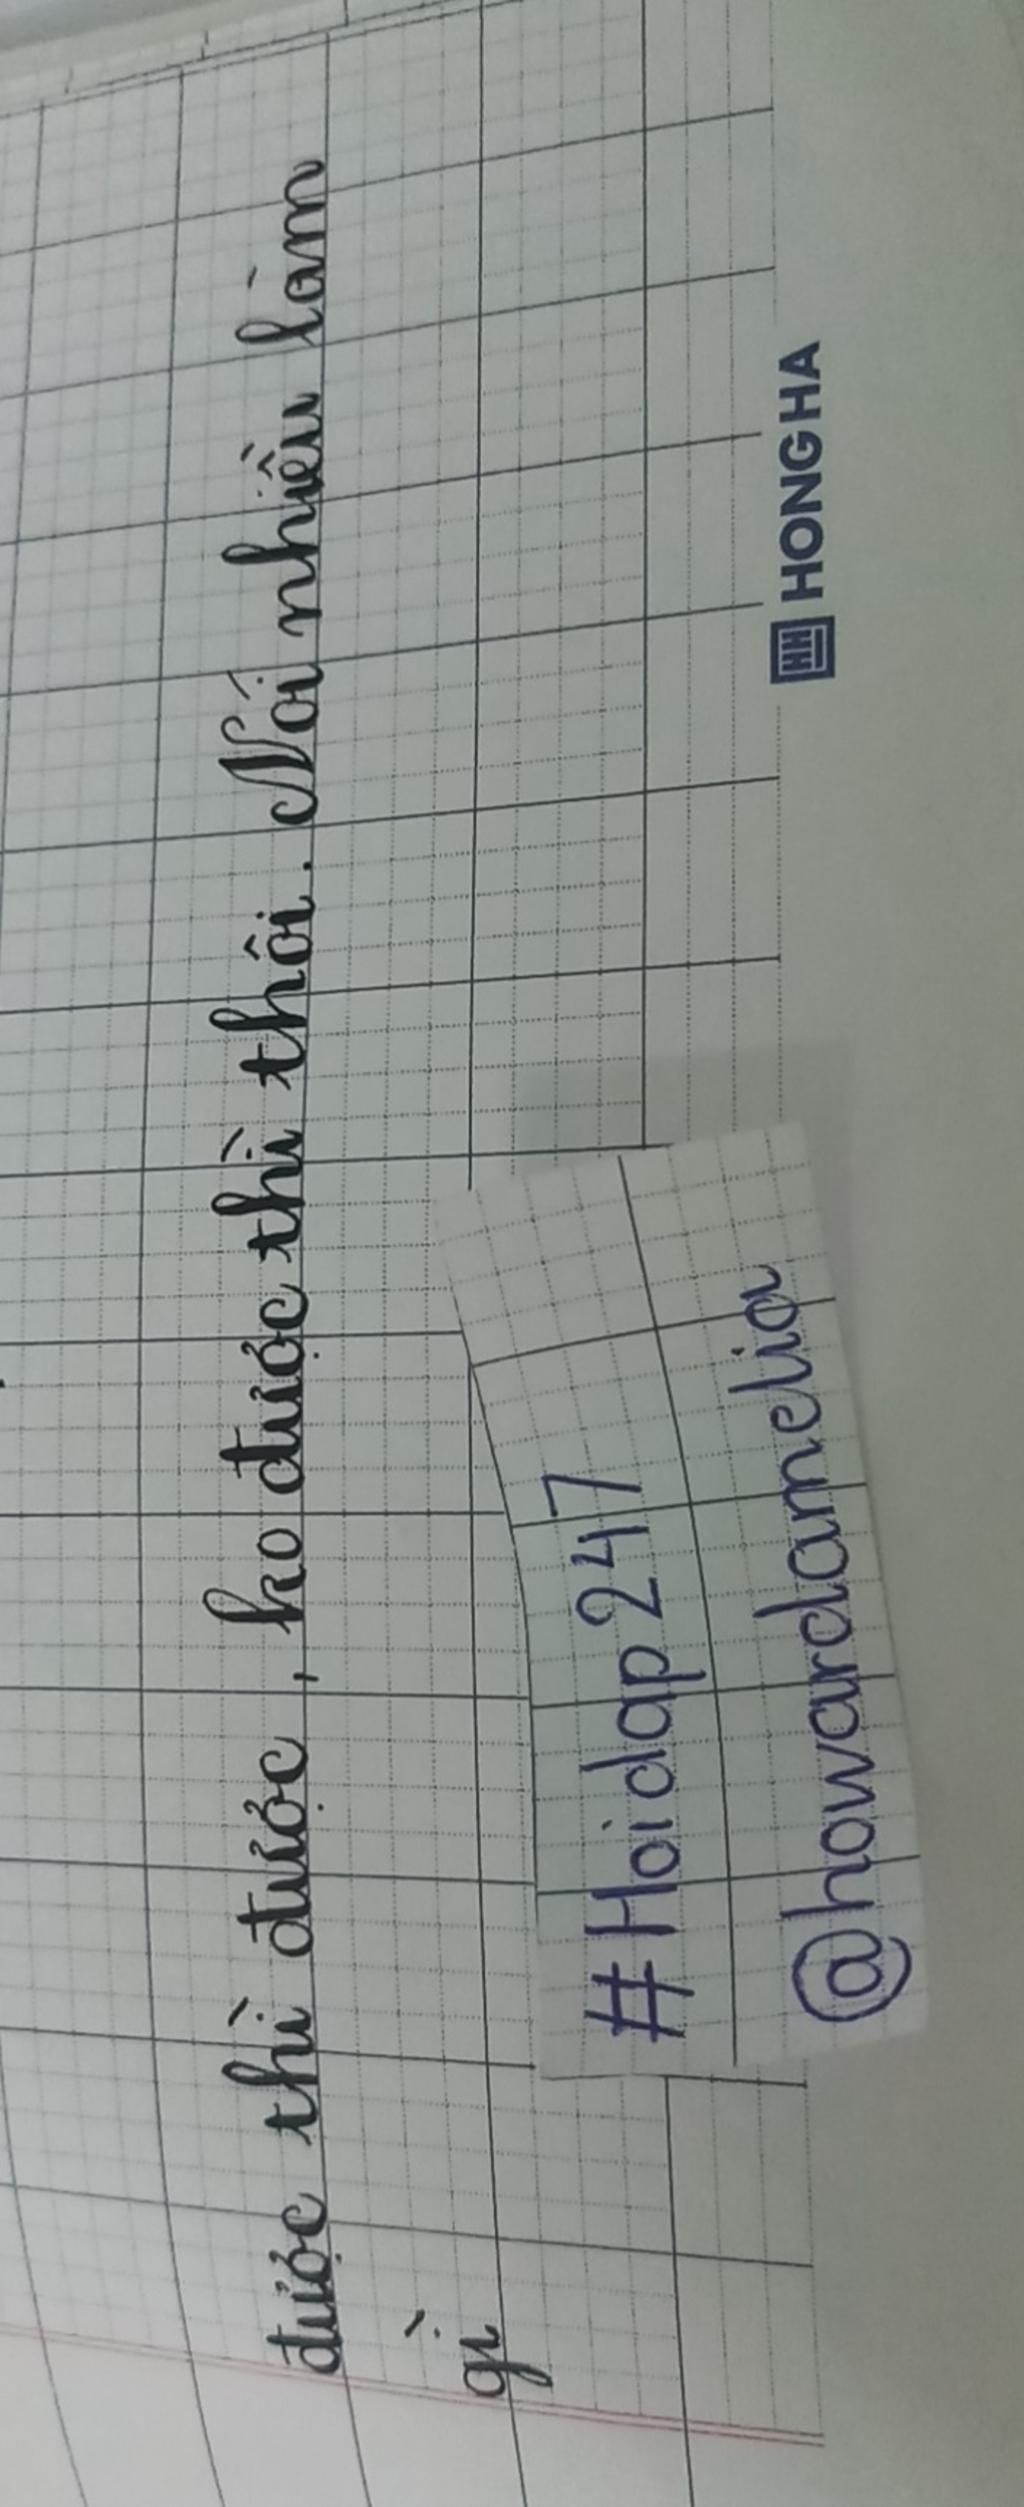 được thì được, ko được thì thôi. Nói nhiều lắm
gì
#Hoidap247
@howardamelia
HH HONG HA